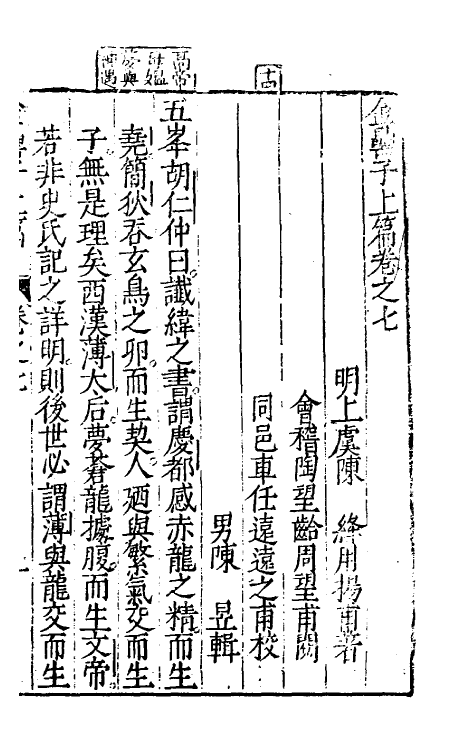 金罍子上篇卷之七
明上虞陳　絳用揚甫著
會稽陶望齡周望甫閱
同邑車任遠遠之甫校
男陳　昱輯
五峯胡仁仲曰讖緯之書謂慶都感赤龍之精而生
堯簡狄吞玄鳥之卵而生契人迺與繁氣交而生
子無是理矣西漢薄太后夢蒼龍據腹而生文帝
若非史氏記之詳明則後世必謂薄與龍交而生
卷之七